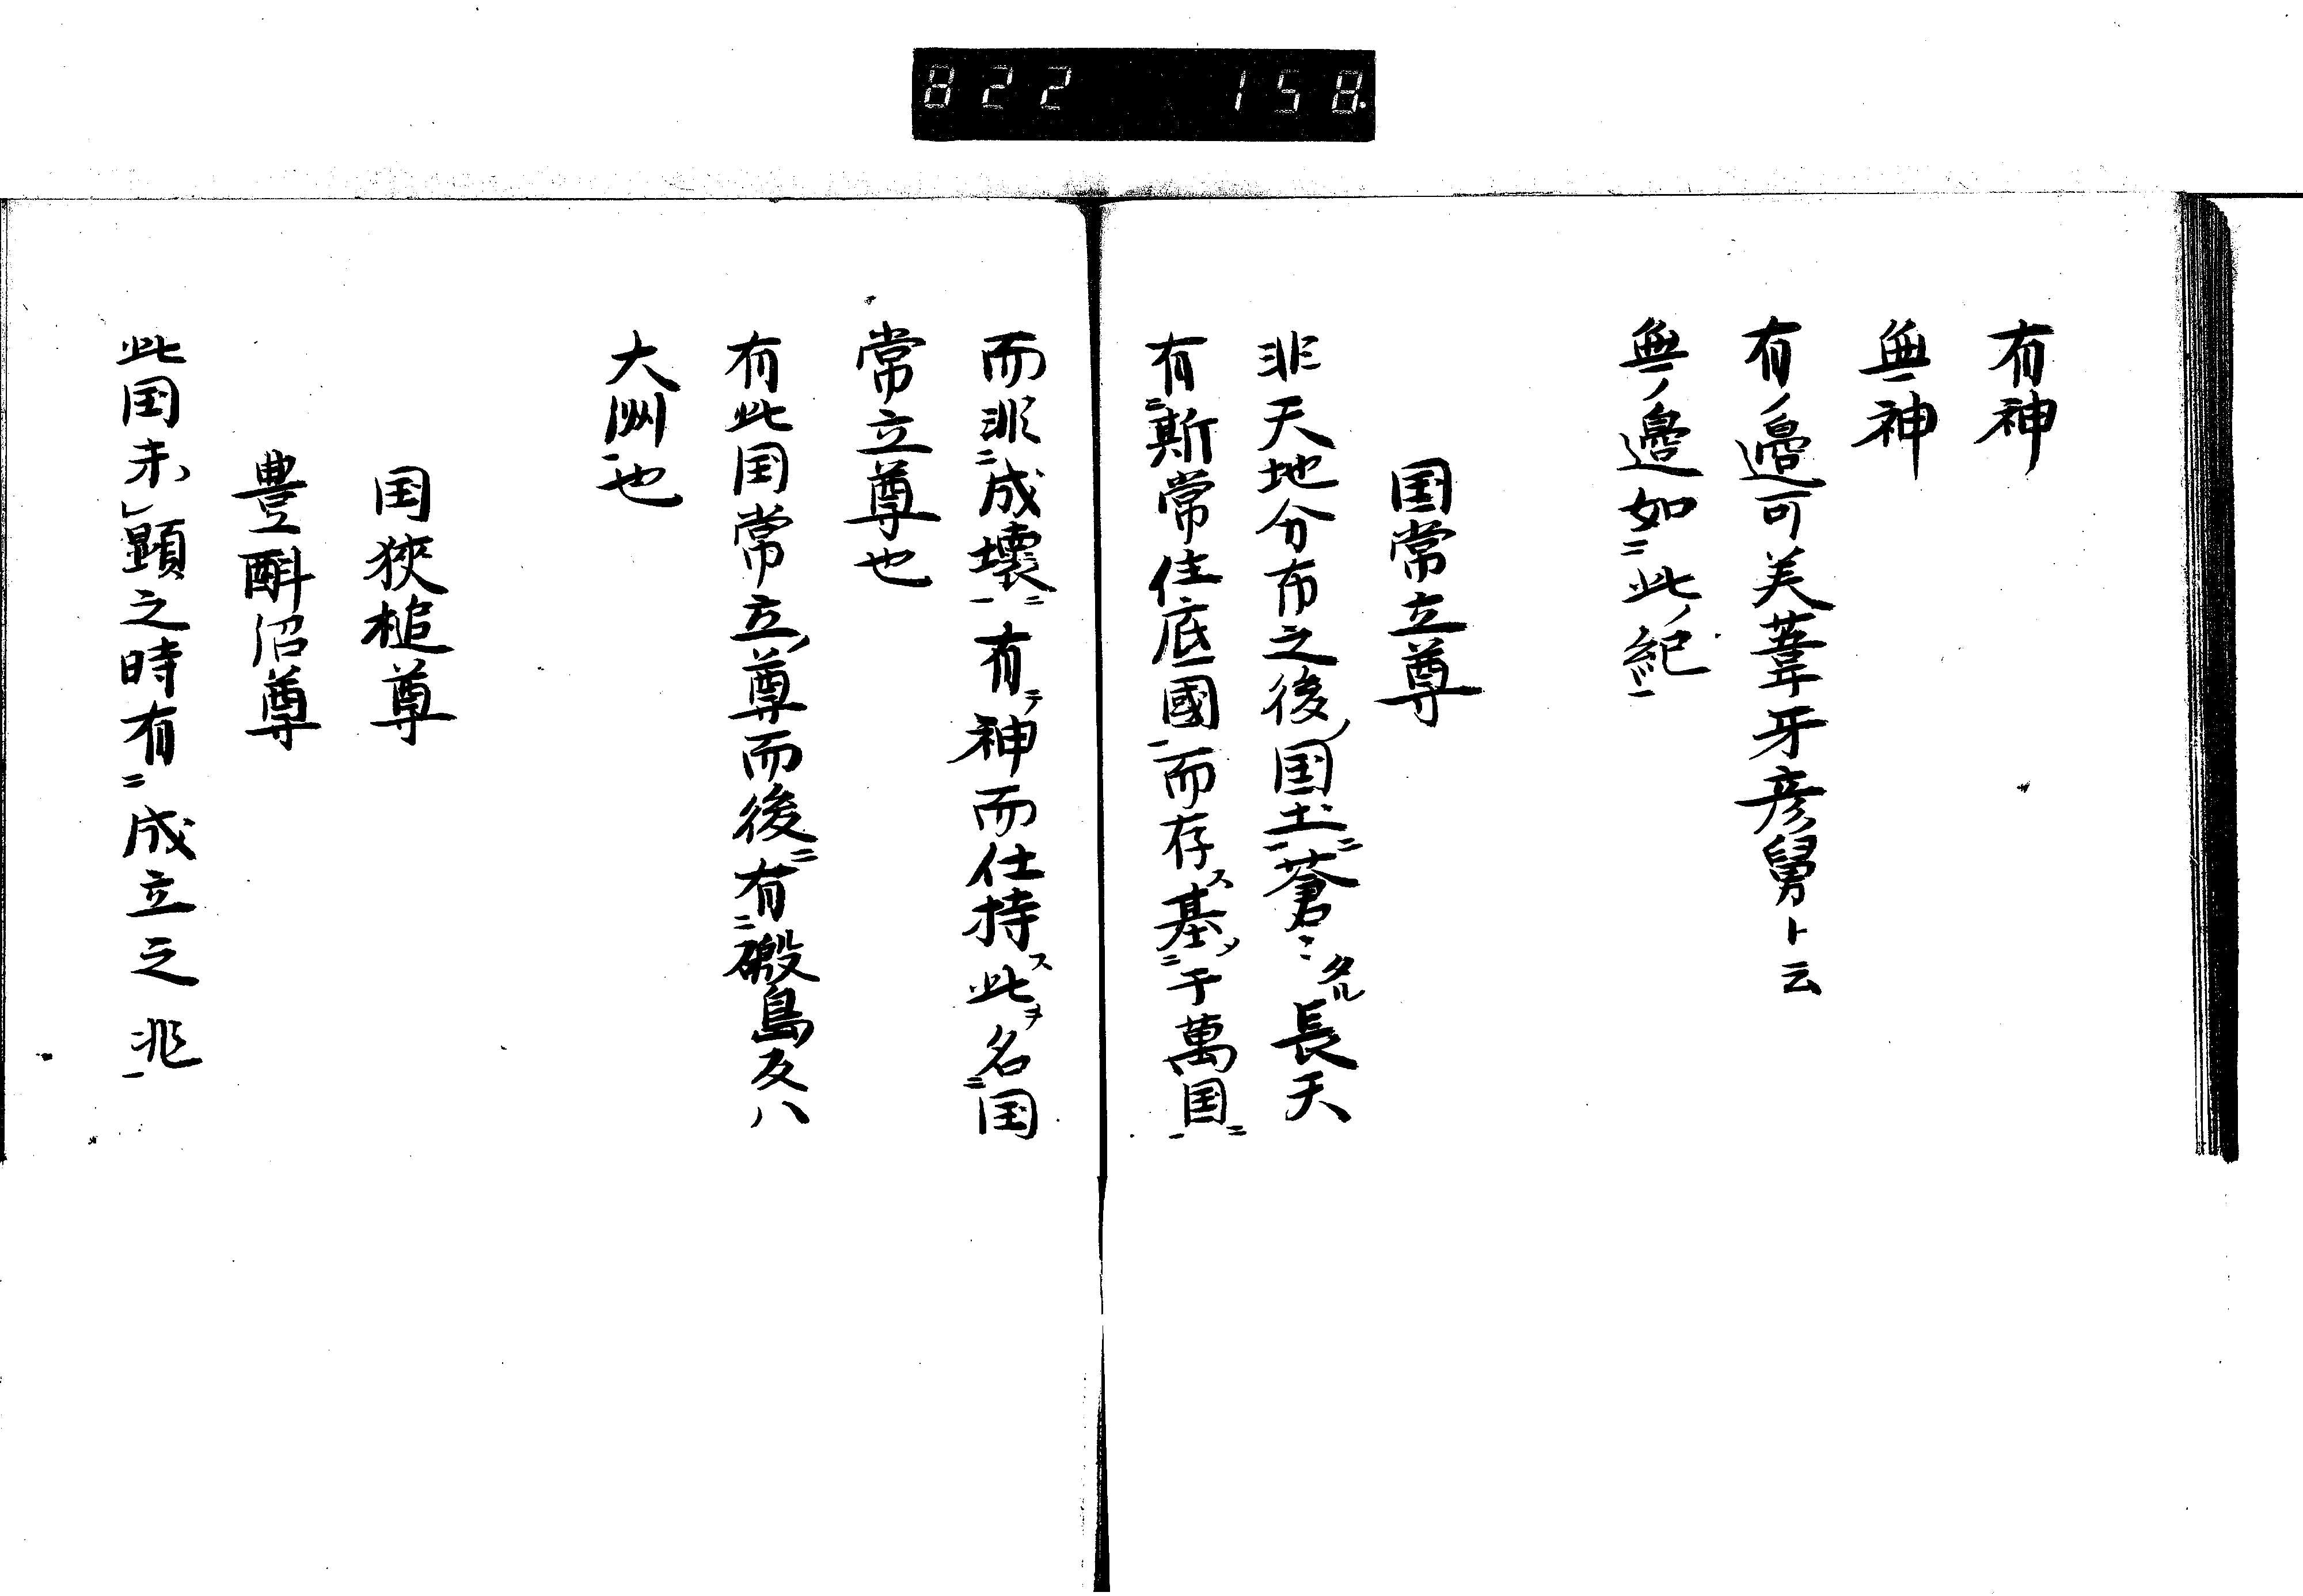 822 158
有神
無神
有ノ邊可美葦牙彦舅ト云
無ノ邊如二此ノ紀一
国常立尊
非天地分布之後ノ国土一蒼々タル長天
有二斯常住底國一而存ス基ノ二于萬国一
而非二成壞一有テ神而仕持ス此ヲ名二国
常立尊也
有此国常立ノ尊而後有二磤島及八
大洲一也
国狹槌尊
豊斟沼尊
此国未レ顕之時有二成立之兆一